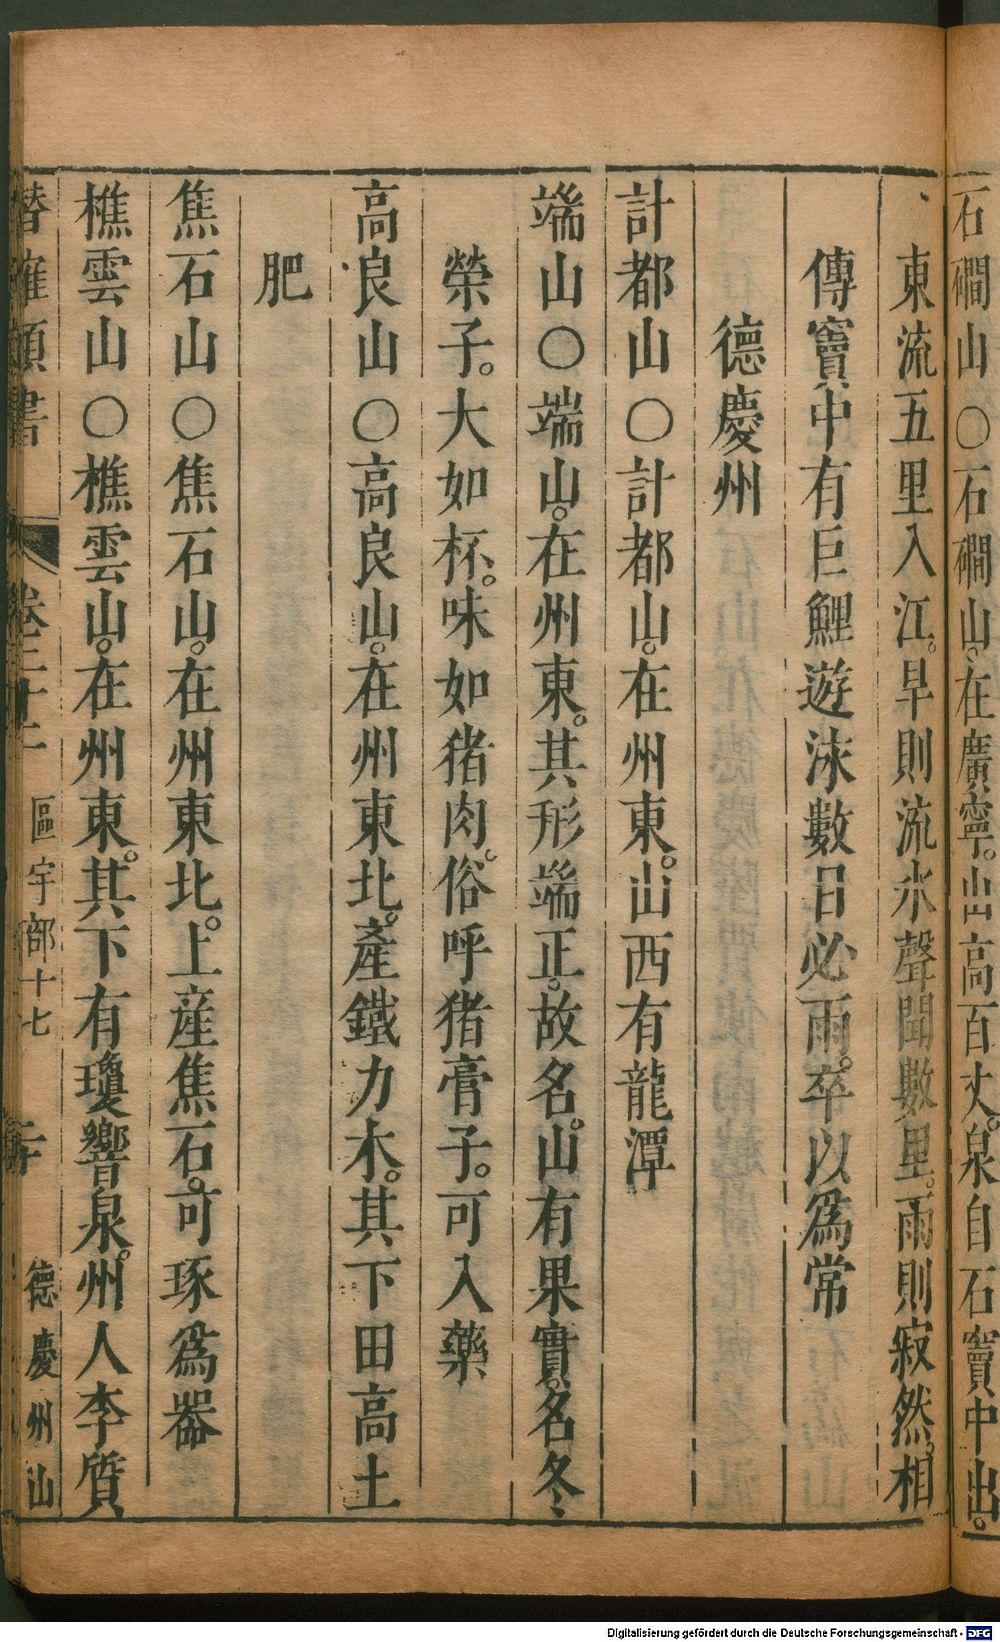 石磵山○石磵山。在廣寧。山高百丈。泉自石竇中出。
東流五里入江。旱則流水聲聞數里。雨則寂然。相
傳竇中有巨鯉遊沫數日必雨。卒以爲常
德慶州
計都山○計都山。在州東。山西有龍潭
端山○端山。在州東。其形端正。故名。山有果實。名冬
榮子。大如杯。味如猪肉。俗呼猪膏子。可入藥
高良山○高良山。在州東北。產鐵力木。其下田高土
肥
焦石山○焦石山。在州東北。上產焦石。可琢爲器
樵雲山○樵雲山。在州東。其下有瓊響泉。州人李質
潜確類書 卷三十 區宇部十七 二十 德慶州山
Digitalisierung gefördert durch die Deutsche Forschungsgemeinschaft - DFG